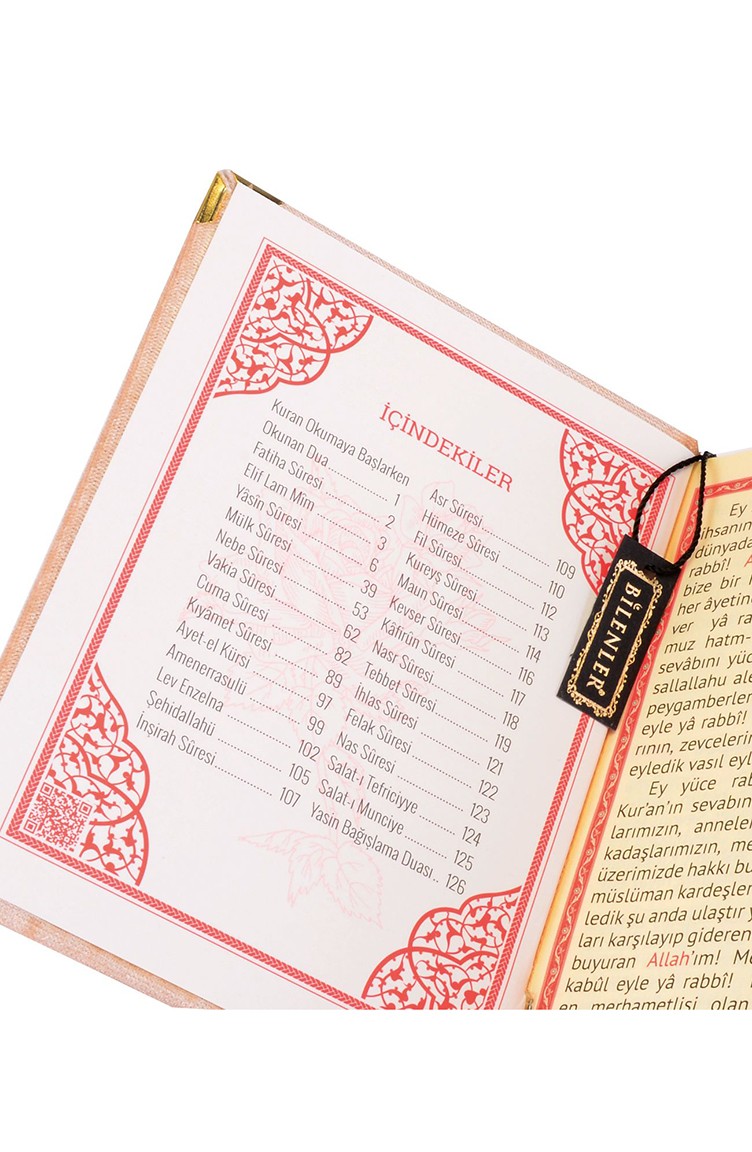 İÇİNDEKİLER
Kuran Okumaya Başlarken
Okunan Dua 1
Fatiha Sûresi 2
Elif Lam Mim 3
Yâsîn Sûresi 6
Mülk Sûresi 39
Nebe Sûresi 53
Vakia Sûresi 62
Cuma Sûresi 82
Kıyâmet Sûresi 89
Ayet-el Kürsi 97
Amenerrasulü 99
Lev Enzelna 102
Şehidallahü 105
İnşirah Sûresi 107
Asr Sûresi 109
Hümeze Sûresi 110
Fil Sûresi 112
Kureyş Sûresi 113
Maun Sûresi 114
Kevser Sûresi 116
Kâfirûn Sûresi 117
Nasr Sûresi 118
Tebbet Sûresi 119
İhlas Sûresi 121
Felak Sûresi 122
Nas Sûresi 123
Salat-ı Tefriciyye 124
Salat-ı Munciye 125
Yasin Bağışlama Duası 126
BİLENLER
Ey
ihsanın
dünyada
rabbî!
bize bir
her âyetin
ver yâ ra
muz hatm-
sevâbını yüc
sallallahu ale
peygamberler
eyle yâ rabbî!
rının, zevcelerin
eyledik vasıl eyl
Ey yüce rab
Kur'an'ın sevabın
larımızın, annele
kadaşlarımızın, me
üzerimizde hakkı bu
müslüman kardeşler
ledik şu anda ulaştır y
ları karşılayıp gideren
buyuran Allah'ım! Me
kabûl eyle yâ rabbî!
en merhametlisi olan